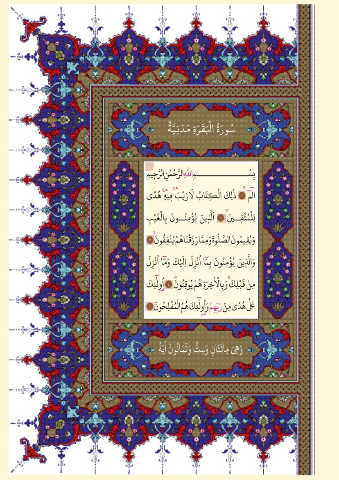 سُورَةُ الْبَقَرَةِ مَدَنِيَّةٌ
بِسْمِ اللّٰهِ الرَّحْمٰنِ الرَّحِيمِ
الٓمٓ ذٰلِكَ الْكِتَابُ لَا رَيْبَ فِيهِ هُدًى
لِلْمُتَّقِينَ الَّذِينَ يُؤْمِنُونَ بِالْغَيْبِ
وَيُقِيمُونَ الصَّلٰوةَ وَمِمَّا رَزَقْنَاهُمْ يُنْفِقُونَ
وَالَّذِينَ يُؤْمِنُونَ بِمَا أُنْزِلَ إِلَيْكَ وَمَا أُنْزِلَ
مِنْ قَبْلِكَ وَبِالْآخِرَةِ هُمْ يُوقِنُونَ أُولٰئِكَ
عَلٰى هُدًى مِنْ رَبِّهِمْ وَأُولٰئِكَ هُمُ الْمُفْلِحُونَ
وَهِيَ مِائَتَانِ وَسِتٌّ وَثَمَانُونَ آيَةً